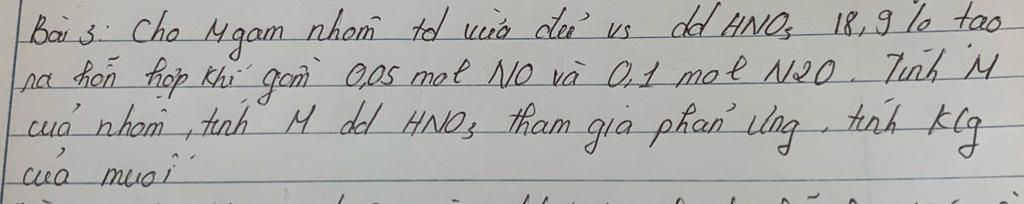 Bài 3: Cho M gam nhôm td vừa đủ vs dd HNO3 18,9% tạo
ra hỗn hợp khí gồm 0,05 mol NO và 0,1 mol N2O. Tính M
của nhôm, tính M dd HNO3 tham gia phản ứng, tính klg
của muối